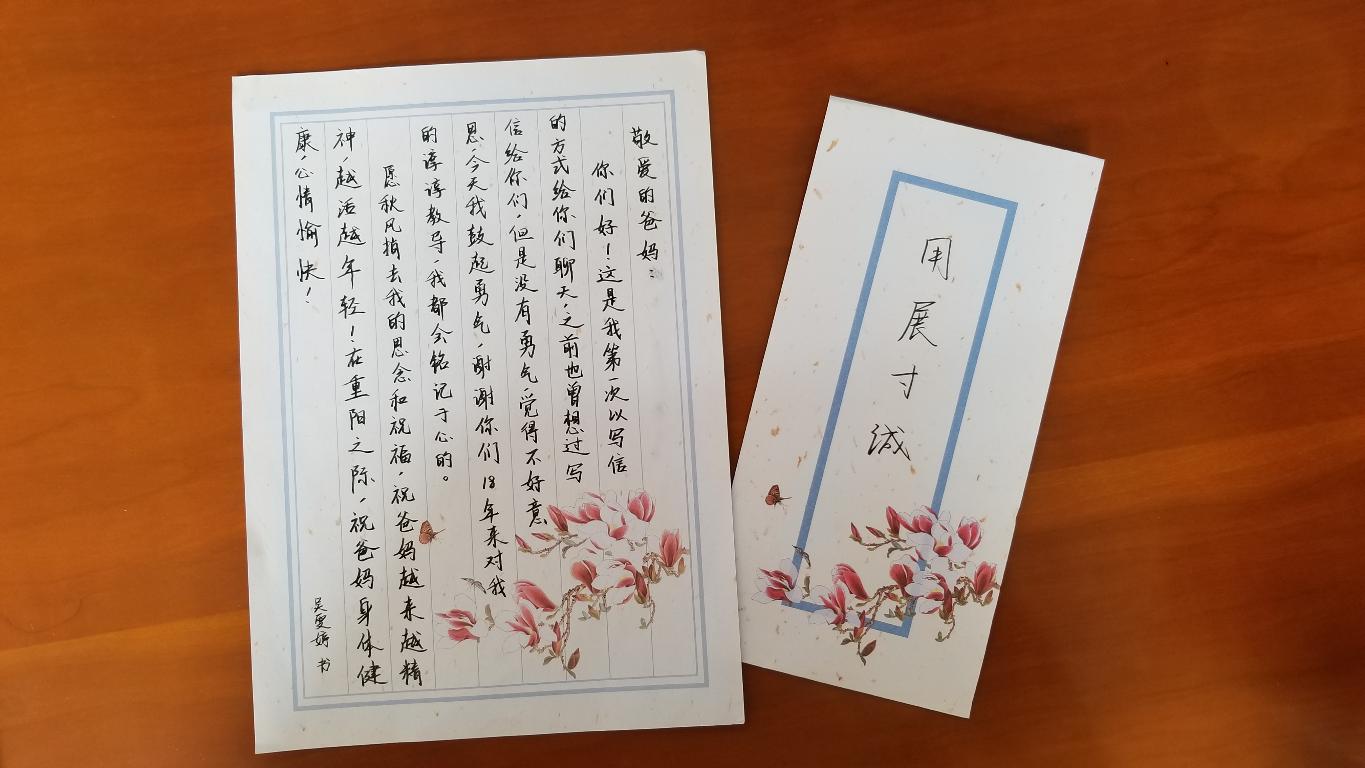 敬爱的爸妈：
你们好！这是我第一次以写信
的方式给你们聊天，之前也曾想过写
信给你们，但是没有勇气，觉得不好意
思，今天我鼓起勇气，谢谢你们18年来对我
的谆谆教导，我都会铭记于心的。
愿秋风捎去我的思念和祝福，祝爸妈越来越精
神，越活越年轻！在重阳之际，祝爸妈身体健
康，心情愉快！
吴雯婷 书
用展寸诚